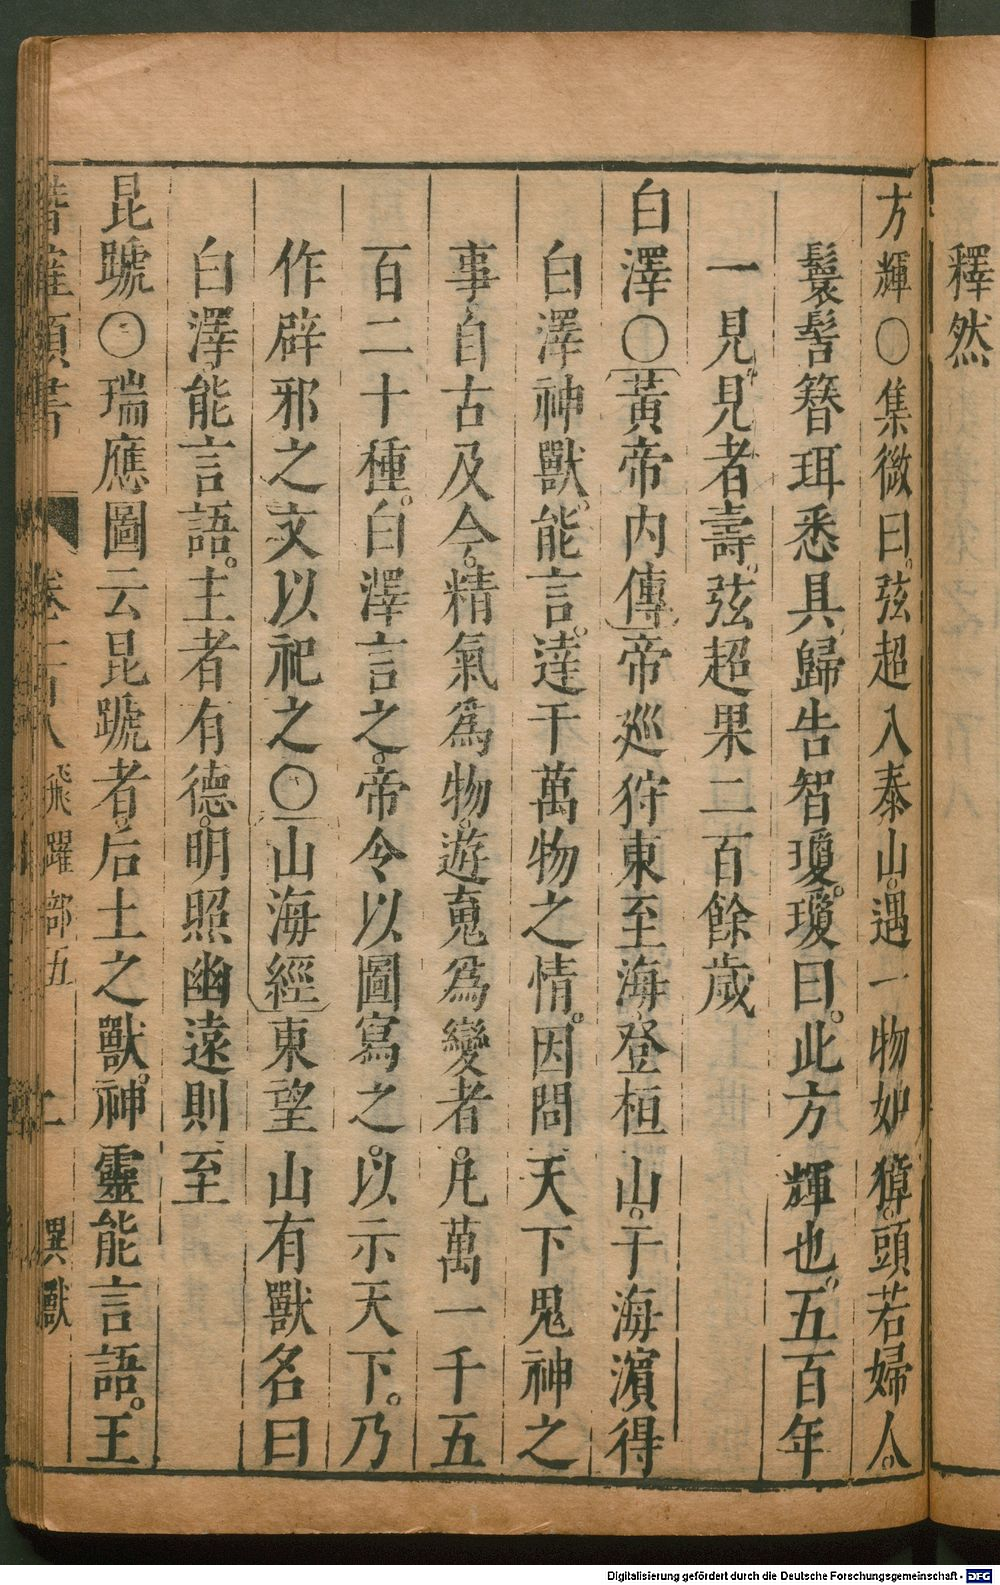 釋然
方輝〇集微曰。弦超入泰山。遇一物如獐。頭若婦人。
鬟髻簪珥悉具。歸告智瓊。瓊曰。此方輝也。五百年
一見。見者壽。弦超果二百餘歲
白澤〇黃帝內傳帝巡狩東至海。登桓山。于海濵得
白澤神獸。能言。達于萬物之情。因問天下鬼神之
事。自古及今。精氣爲物。遊䰟爲變者。凡萬一千五
百二十種。白澤言之。帝令以圖寫之。以示天下。乃
作辟邪之文以祀之〇山海經東望山有獸名曰
白澤。能言語。主者有德。明照幽遠則至
昆蹏〇瑞應圖云昆蹏者。后土之獸。神靈能言語。王
潛確類書 卷一百八 飛躍部五 二 異獸
Digitalisierung gefördert durch die Deutsche Forschungsgemeinschaft - DFG